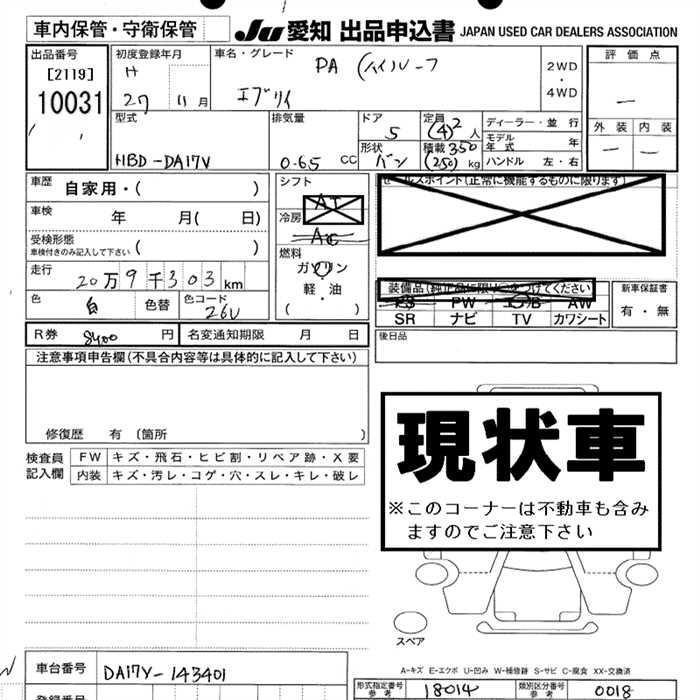 車内保管・守衛保管
JU 愛知 出品申込書 JAPAN USED CAR DEALERS ASSOCIATION
出品番号 初度登録年月 車名・グレード PA (ハイルーフ 2WD・4WD 評価点
[2119] H
10031 27 11月 エブリイ ー
型式 排気量 ドア 5 定員 (4)2人 ディーラー・並行 外装 内装
形状 バン 積載 350 (250)kg モデル年式 年 ー ー
HBD-DA17V 0.65 CC ハンドル 左・右
車歴 自家用・( ) シフト AT セールスポイント(正常に機能するものに限ります)
車検 年 月( 日) 冷房 AC
受検形態
車検付きのみ記入して下さい ( ) 燃料
走行 20万9千303km ガソリン
軽・油
( )
装備品(純正品に限り○をつけてください) 新車保証書
色 白 色替 色コード 26U PS PW エアB AW 有・無
SR ナビ TV カワシート
R券 8400円 名変通知期限 月 日 後日品
注意事項申告欄(不具合内容等は具体的に記入して下さい)
修復歴 有 〔箇所 〕
現状車
※このコーナーは不動車も含み
ますのでご注意下さい
検査員 FW キズ・飛石・ヒビ割・リペア跡・X要
記入欄 内装 キズ・汚レ・コゲ・穴・スレ・キレ・破レ
スペア
A-キズ E-エクボ U-凹み W-補修跡 S-サビ C-腐食 XX-交換済
車台番号 DA17V-143401
形式指定番号 参考 18014 類別区分番号 参考 0018
登録番号